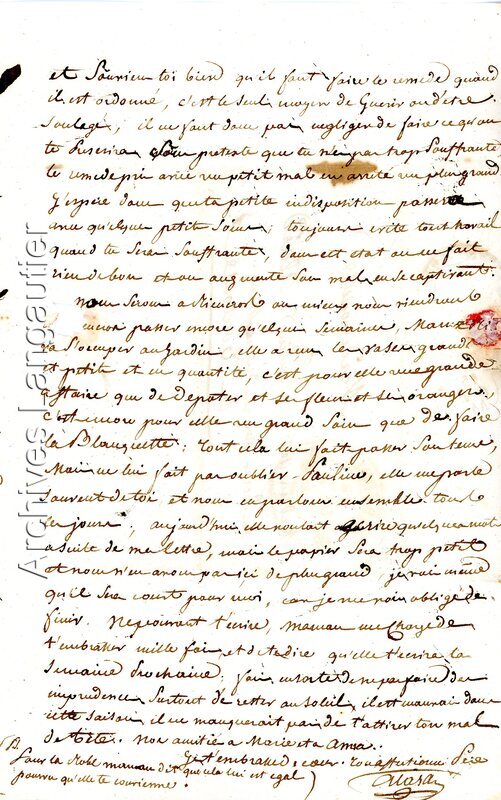 et Souvien toi bien qu'il faut faire le remede quand
il est ordonné, c'est le seul moyen de Guerir ou d'etre
Soulagé, il ne faut donc pas negliger de faire ce qu'on
te prescrira Sous pretexte que tu n'es pas trop Souffrante
le remede pris arrete un petit mal en arrete un plus grand
J'espere donc que ta petite indisposition passera
avec quelque petit Soins; toujours evite tout travail
quand tu Sera Souffrante, dans cet etat on ne fait
rien de bon et on augmente Son mal en se captivant.
nous Serons a
encore passer encore quelque Semaine, Maman
a S'occuper au Jardin, elle a rempli les vases grand
et petits et en quantité, c'est pour elle une grande
affaire que de Depoter et ses fleurs et ses orangers.
c'est encore pour elle un grand Soin que de faire
la Blanquette; Tout cela lui fait passer Son tems,
Mais ne lui fait pas oublier Pauline, elle me parle
Souvent de toi et nous en parlons ensemble tous
les jours; aujourd'hui elle voulait ecrire quelques mots
a Suite de ma lettre, mais le papier Sera trop petit
et nous n'en avons pas ici de plus grand, je vois même
qu'il Sera court pour moi, car je me vois obligé de
finir. Ne pouvant t'écrire, Maman me Charge de
t'embrasser mille fois et de te dire qu'elle t'ecrira la
Semaine prochaine; fais en sorte de ne pas faire des
imprudences Surtout de rester au Soleil, il est mauvais dans
cette Saison, il ne manquerait pas de t'attirer ton mal
de tête. Nos amitiés a Marie et a Anna.
Je t'embrasse de coeur. Ton affectionné Pere
Pour la Robe maman dit que cela lui est egal
pourvu qu'elle te convienne.
Archives Langautier